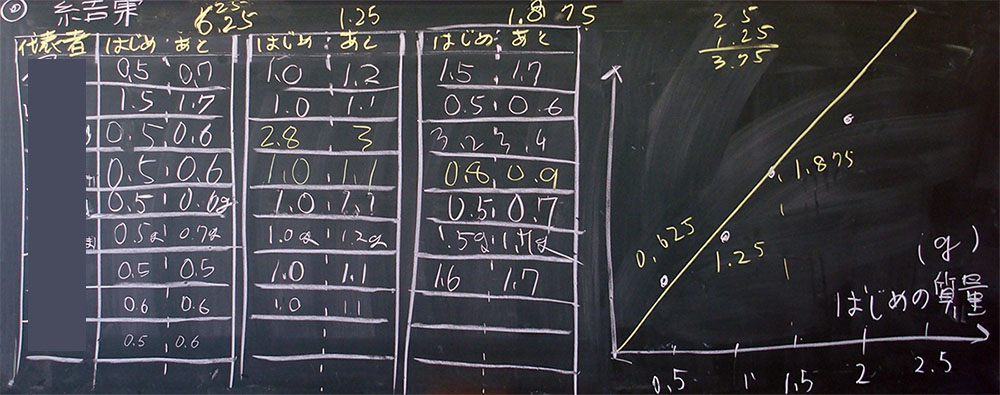 ⓪ 結果
0.625 1.25 1.875
代表者 はじめ あと はじめ あと はじめ あと
0.5 0.7 1.0 1.2 1.5 1.7
1.5 1.7 1.0 1.1 0.5 0.6
0.5 0.6 2.8 3 3.2 3.4
0.5 0.6 1.0 1.1 0.8 0.9
0.5 1.0 1.1 0.5 0.7
0.5g 0.7g 1.0g 1.2g 1.5g 1.7g
0.5 0.5 1.0 1.1 1.6 1.7
0.6 0.6 1.0 1.1
0.5 0.6
2.5
1.25
3.75
1.875
0.625
1.25
(g)
はじめの質量
0.5 1 1.5 2 2.5